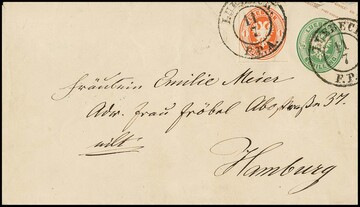 LUBECK
11
7
F.P.A.
LUBECK
11
7
F.P.A.
Fräulein Emilie Meier
Adr. Frau Fröbel Abcstraße 37.
eilt
Hamburg